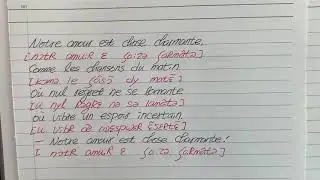 Notre amour est chose charmante,
[nɔtR amuR ɛ ʃoːzə ʃaRmãtə]
Comme les chansons du matin
[kɔmə le ʃãsɔ̃ dy matɛ̃]
Où nul regret ne se lamente
[u nyl Rəgrɛ nə sə lamãtə]
où vibre un espoir incertain,
[u vibR
— Notre amour est chose charmante!
[nɔtR amuR ɛ ʃoːzə ʃaRmãtə]